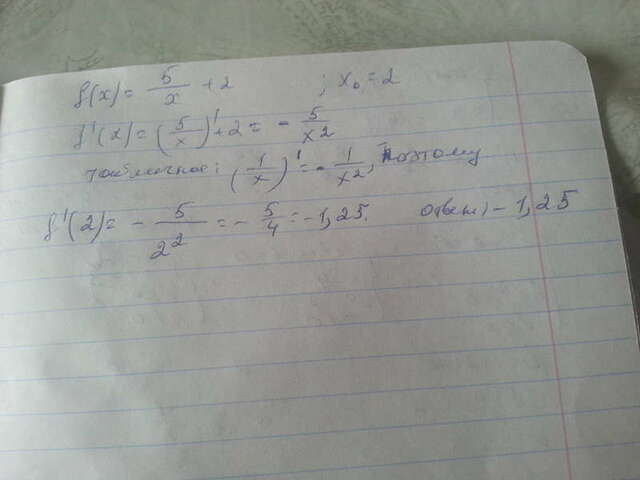 f(x) = 5/x + 2 ; x₀ = 2
f'(x) = (5/x)' + 2 = - 5/x²
табличное: (1/x)' = - 1/x², поэтому
f'(2) = - 5/2² = - 5/4 = -1,25. Ответ: -1,25